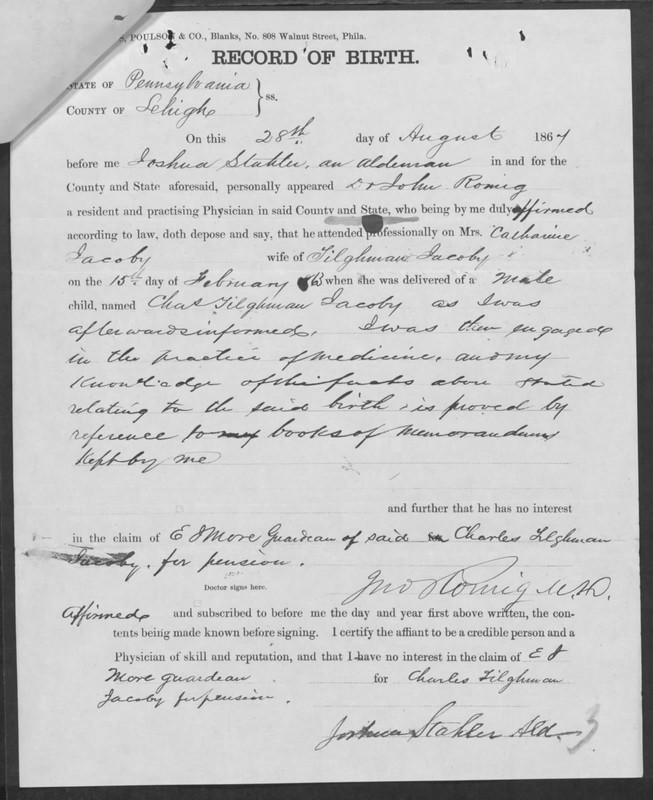 POULSON & CO., Blanks, No. 808 Walnut Street, Phila.
RECORD OF BIRTH.
STATE OF Pennsylvania
COUNTY OF Lehigh } ss.
On this 28th day of August 1867
before me Joshua Stahler, an alderman in and for the
County and State aforesaid, personally appeared Dr John Romig
a resident and practising Physician in said County and State, who being by me duly affirmed
according to law, doth depose and say, that he attended professionally on Mrs. Catharine
Jacoby wife of Tilghman Jacoby
on the 15th day of February when she was delivered of a Male
child, named Chas Tilghman Jacoby as I was
afterwards informed, I was then engaged
in the practice of medicine, and my
Knowledge of the facts above stated
relating to the said birth, is proved by
reference to my books of Memorandums
Kept by me
and further that he has no interest
in the claim of E J More Guardean of said Charles Tilghman
Jacoby, for pension.
Doctor signs here.
Jno Romig M.D.
Affirmed and subscribed to before me the day and year first above written, the con-
tents being made known before signing. I certify the affiant to be a credible person and a
Physician of skill and reputation, and that I have no interest in the claim of E J
More guardean for Charles Tilghman
Jacoby for pension.
Joshua Stahler Ald.
3